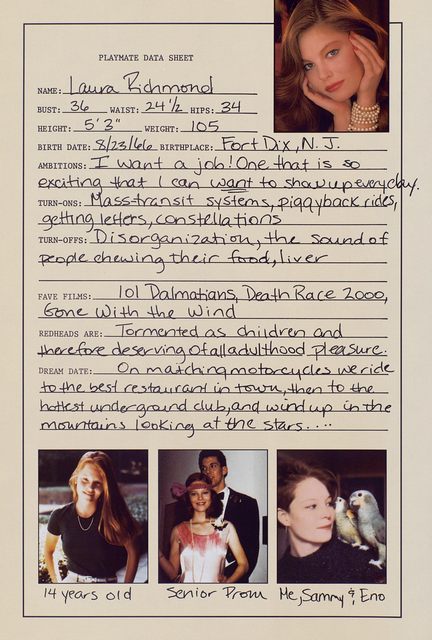 PLAYMATE DATA SHEET
NAME: Laura Richmond
BUST: 36 WAIST: 24 1/2 HIPS: 34
HEIGHT: 5' 3" WEIGHT: 105
BIRTH DATE: 8/23/66 BIRTHPLACE: Fort Dix, N. J.
AMBITIONS: I want a job! One that is so
exciting that I can want to show up every day.
TURN-ONS: Mass-transit systems, piggyback rides,
getting letters, constellations
TURN-OFFS: Disorganization, the sound of
people chewing their food, liver
FAVE FILMS: 101 Dalmatians, Death Race 2000,
Gone With the Wind
REDHEADS ARE: Tormented as children and
therefore deserving of all adulthood pleasure.
DREAM DATE: On matching motorcycles we ride
to the best restaurant in town, then to the
hottest underground club, and wind up in the
mountains looking at the stars....
14 years old
Senior Prom
Me, Sammy & Eno